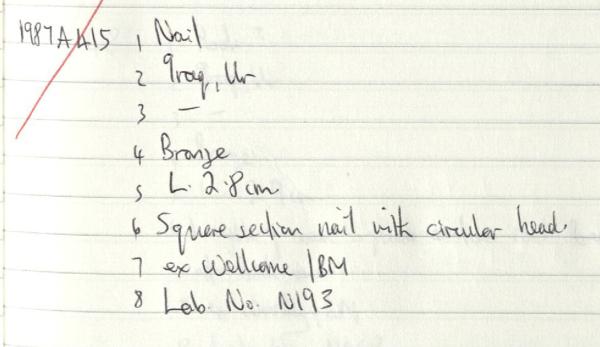 1987A415 1 Nail
2 Iraq, Ur
3 —
4 Bronze
5 L. 2.8cm
6 Square section nail with circular head.
7 ex Wellcome /BM
8 Lab. No. N193